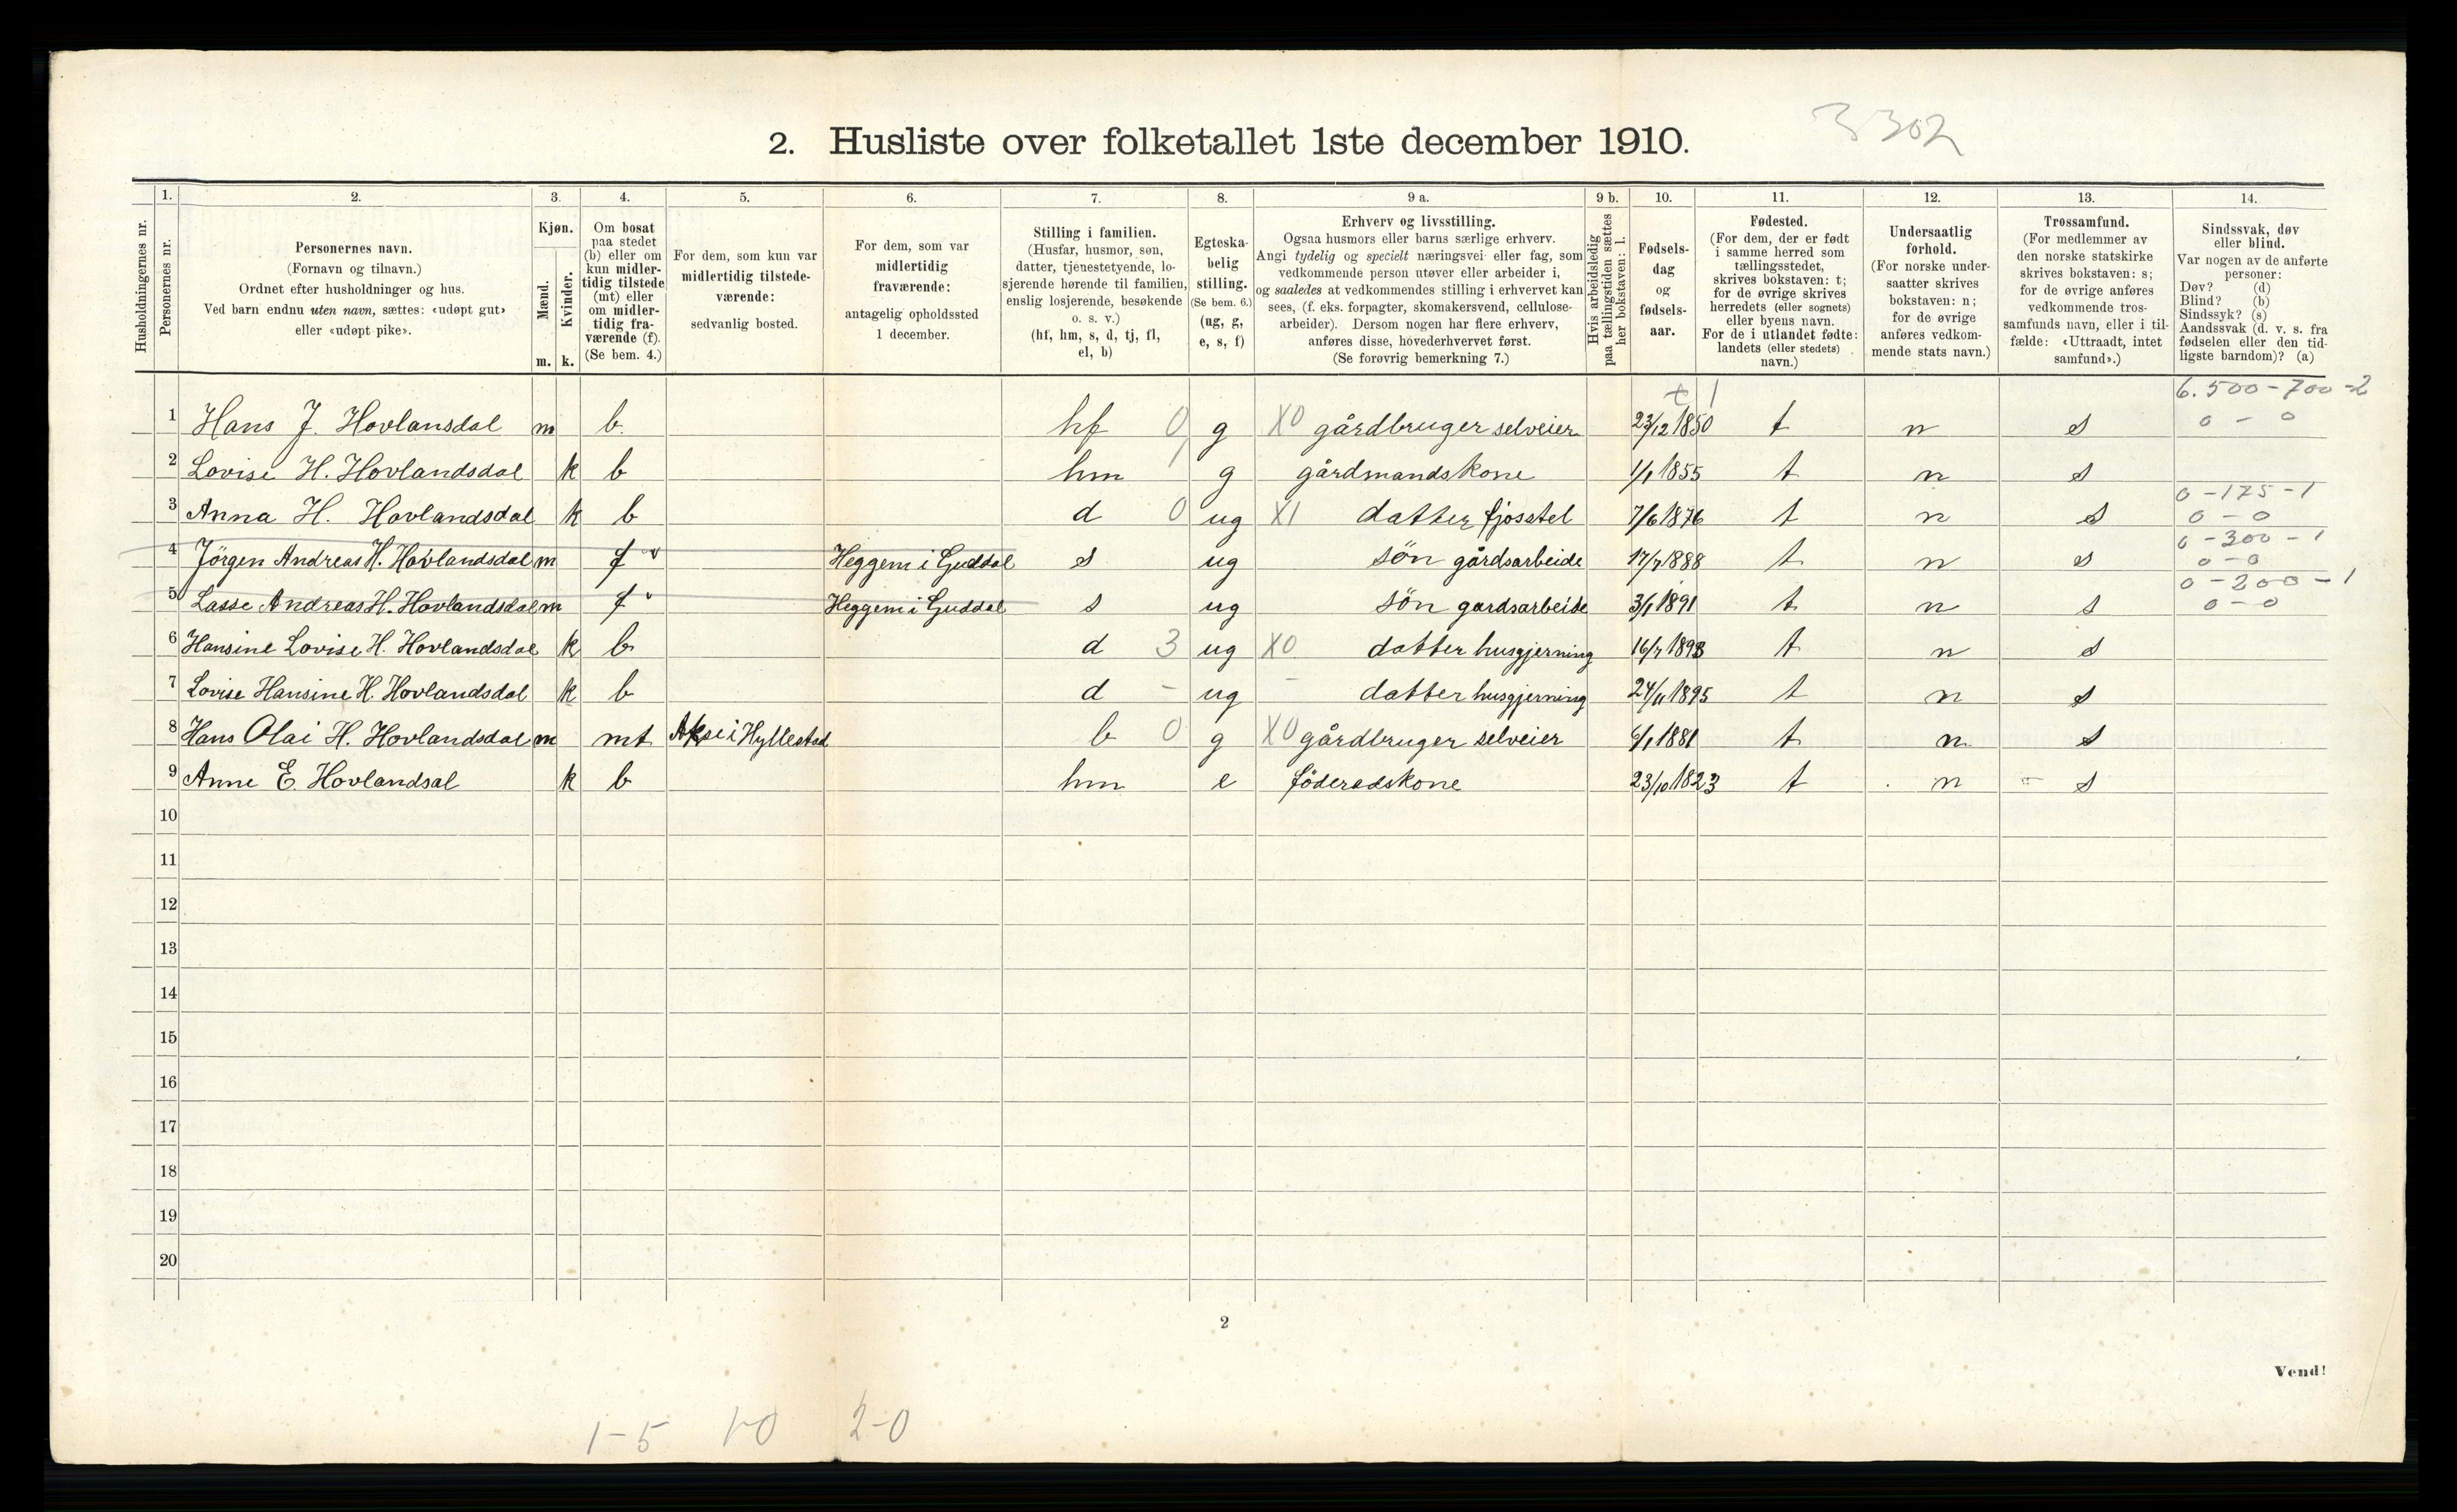 2. Husliste over folketallet 1ste december 1910.
3302
Husholdningernes nr.
1. Personernes nr.
2. Personernes navn.
(Fornavn og tilnavn.)
Ordnet efter husholdninger og hus.
Ved barn endnu uten navn, sættes: «udøpt gut»
eller «udøpt pike».
3. Kjøn.
Mænd. m.
Kvinder. k.
4. Om bosat
paa stedet
(b) eller om
kun midler-
tidig tilstede
(mt) eller
om midler-
tidig fra-
værende (f).
(Se bem. 4.)
5. For dem, som kun var
midlertidig tilstede-
værende:
sedvanlig bosted.
6. For dem, som var
midlertidig
fraværende:
antagelig opholdssted
1 december.
7. Stilling i familien.
(Husfar, husmor, søn,
datter, tjenestetyende, lo-
sjerende hørende til familien,
enslig losjerende, besøkende
o. s. v.)
(hf, hm, s, d, tj, fl,
el, b)
8. Egteska-
belig
stilling.
(Se bem. 6.)
(ug, g,
e, s, f)
9 a. Erhverv og livsstilling.
Ogsaa husmors eller barns særlige erhverv.
Angi tydelig og specielt næringsvei eller fag, som
vedkommende person utøver eller arbeider i,
og saaledes at vedkommendes stilling i erhvervet kan
sees, (f. eks. forpagter, skomakersvend, cellulose-
arbeider). Dersom nogen har flere erhverv,
anføres disse, hovederhvervet først.
(Se forøvrig bemerkning 7.)
9 b. Hvis arbeidsledig
paa tællingstiden sættes
her bokstaven: l.
10. Fødsels-
dag
og
fødsels-
aar.
11. Fødested.
(For dem, der er født
i samme herred som
tællingsstedet,
skrives bokstaven: t;
for de øvrige skrives
herredets (eller sognets)
eller byens navn.
For de i utlandet fødte:
landets (eller stedets)
navn.)
12. Undersaatlig
forhold.
(For norske under-
saatter skrives
bokstaven: n;
for de øvrige
anføres vedkom-
mende stats navn.)
13. Trossamfund.
(For medlemmer av
den norske statskirke
skrives bokstaven: s;
for de øvrige anføres
vedkommende tros-
samfunds navn, eller i til-
fælde: «Uttraadt, intet
samfund».)
14. Sindssvak, døv
eller blind.
Var nogen av de anførte
personer:
Døv? (d)
Blind? (b)
Sindssyk? (s)
Aandssvak (d. v. s. fra
fødselen eller den tid-
ligste barndom)? (a)
6.500-700-2
1 Hans J. Hovlansdal m b. hf 0 g X0 gårdbruger selveier 23/12 1850 t n s 0-0
2 Lovise H. Hovlandsdal k b hm 1 g gårdmandskone 1/1 1855 t n s
0-175-1
3 Anna H. Hovlandsdal k b d 0 ug X1 datter fjosstel 7/6 1876 t n s 0-0
0-300-1
4 Jörgen Andreas H. Hovlandsdal m f Heggem i Guddal s ug sön gårdsarbeide 17/7 1888 t n s 0-0
0-200-1
5 Lasse Andreas H. Hovlandsdal m f Heggem i Guddal s ug sön gardsarbeide 3/1 1891 t n s 0-0
6 Hansine Lovise H. Hovlandsdal k b d 3 ug X0 datter husgjerning 16/7 1893 t n s
7 Lovise Hansine H. Hovlandsdal k b d - ug - datter husgjerning 24/11 1895 t n s
8 Hans Olai H. Hovlandsdal m mt i Hyllestad b 0 g X0 gårdbruger selveier 6/1 1881 t n s
9 Anne E. Hovlandsal k b hm e föderadskone 23/10 1823 t n s
10
11
12
13
14
15
16
17
18
19
20
2
Vend!
1-5 1-0 2-0